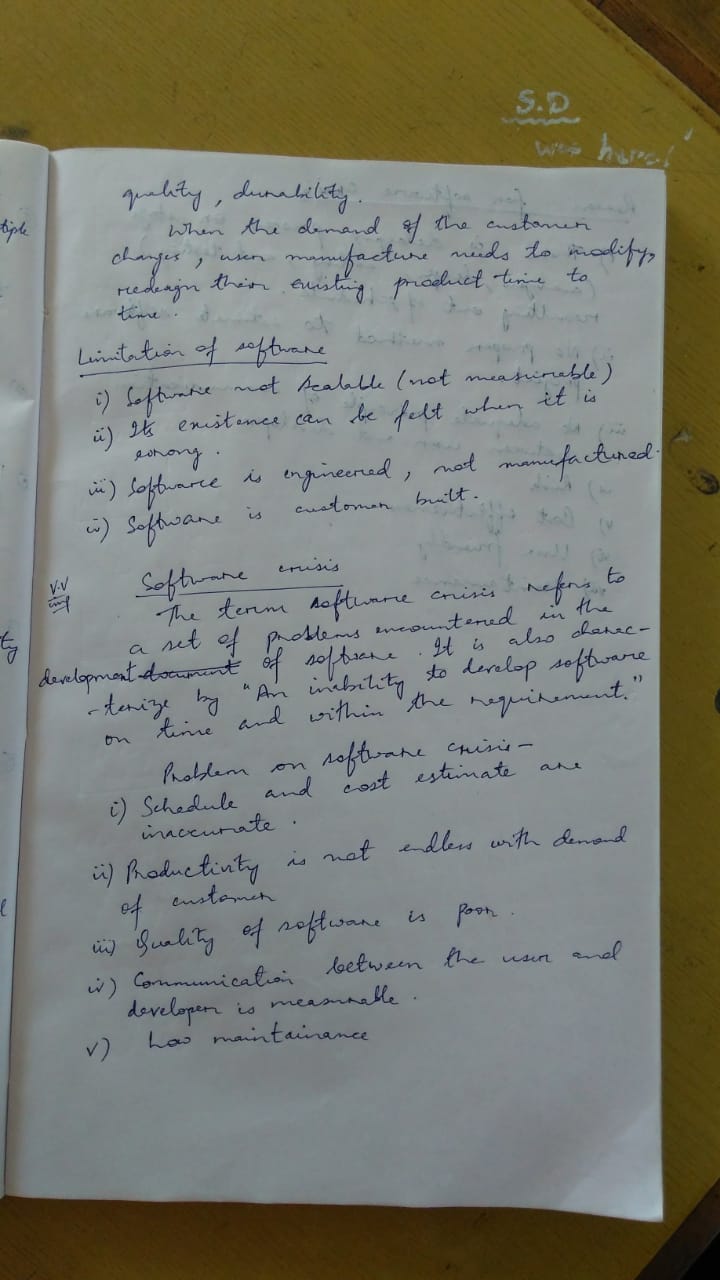 S.D
was here!
quality, durability.
When the demand of the customer
changes, user manufacture needs to modify,
redeagn their existing product time to
time.
Limitation of software
i) Software not scalable (not measurable)
ii) Its existence can be felt when it is
wrong.
iii) Software is engineered, not manufactured.
iv) Software is customer built.
V.V
imp
Software crisis
The term software crisis refers to
a set of problems encountered in the
development document of softsare. It is also charec-
-terize by "An inability to develop software
on time and within the requirement."
Problem on software crisis-
i) Schedule and cost estimate are
inaccurate.
ii) Productivity is not endless with demand
of customer
iii) Quality of software is poor.
iv) Communication between the user and
developer is measurable.
v) Low maintainance